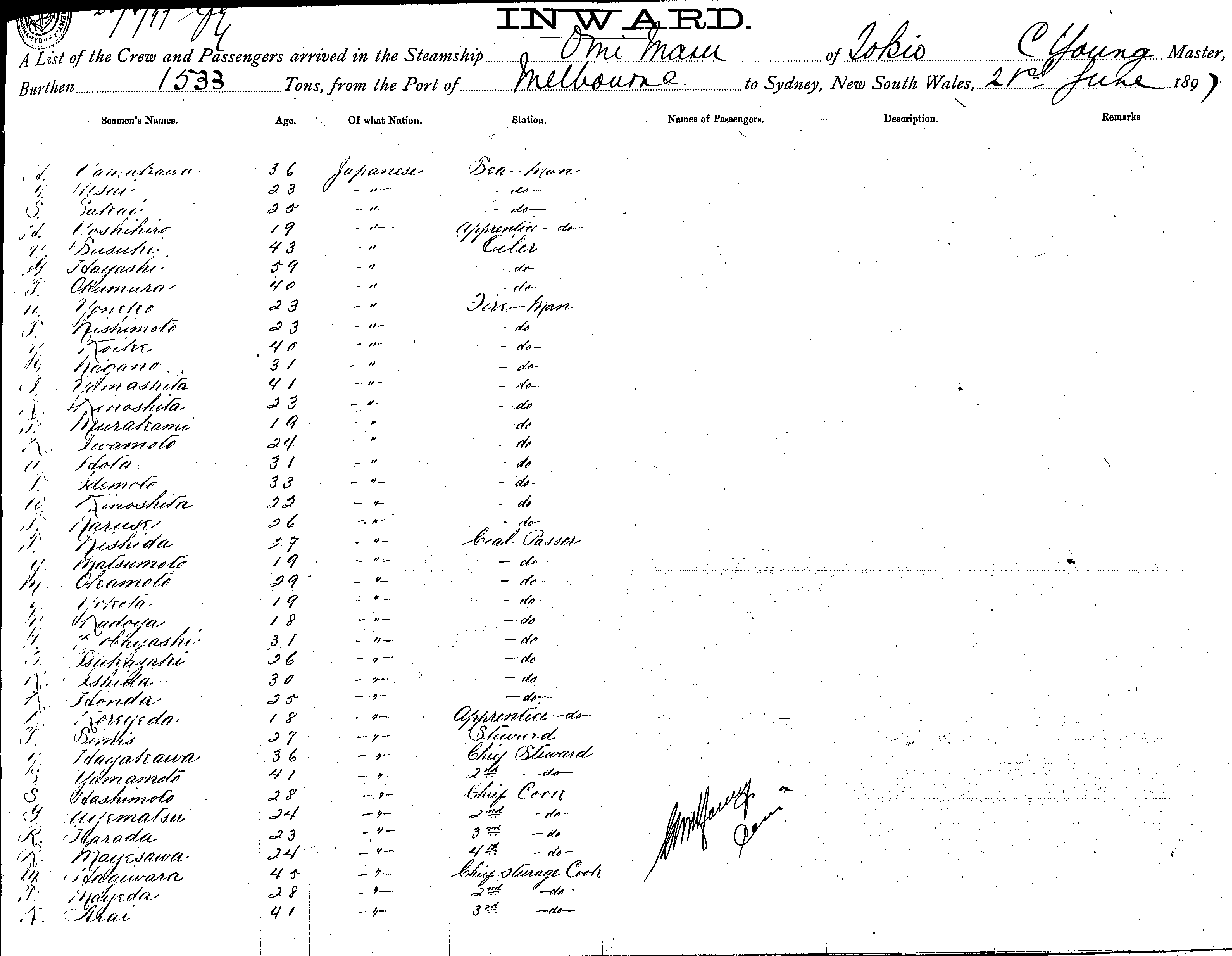 INWARD.
A List of the Crew and Passengers arrived in the Steamship Omi Maru of Tokio C Young Master,
Burthen 1533 Tons, from the Port of Melbourne to Sydney, New South Wales, 21st June 1897
Seamen's Names. Age. Of what Nation. Station. Names of Passengers. Description. Remarks
36 Japanese Sea-man
23 - " - - do -
S. Sakai 25 - " - do -
Yoshihiro 19 - " - Apprentice - do
43 - " - Oiler
Hayashi 59 - " - do
Okamura 40 - " - do
23 - " Fire-man
Nishimoto 23 - " - - do
Koike 40 - " - - do -
Nagano 31 - " - do -
Yamashita 41 - " - - do -
Kinoshita 23 - " - do
Murakami 19 " - do
Iwamoto 24 - " - do
Hota 31 - " - do
Idemoto 33 - " - - do -
Kinoshita 22 - " - - do
26 - " - - do
Nishida 27 - " - Coal Passer
Matsumoto 19 - " - - do -
M. Okamoto 29 - " - - do -
Yokota 19 - " - - do
Kadoya 18 - " - - do
Kobayashi 31 - " - - do
26 - " - - do
Ishida 30 - " - - do
Honda 25 - " - - do -
18 - " - Apprentice - do
27 - " - Steward
Hayakawa 36 - " - Chief Steward
Yamamoto 41 - " - 2nd - do -
S Hashimoto 28 - " - Chief Cook
Uyematsu 24 - " - 2nd - do -
K. Harada 23 - " - 3rd - do
Mayesawa 24 - " - 4th - do -
Hagiwara 45 - " - Chief Sturage Cook
Mayeda 28 - " - 2nd - do -
Arai 41 - " - 3rd - do -